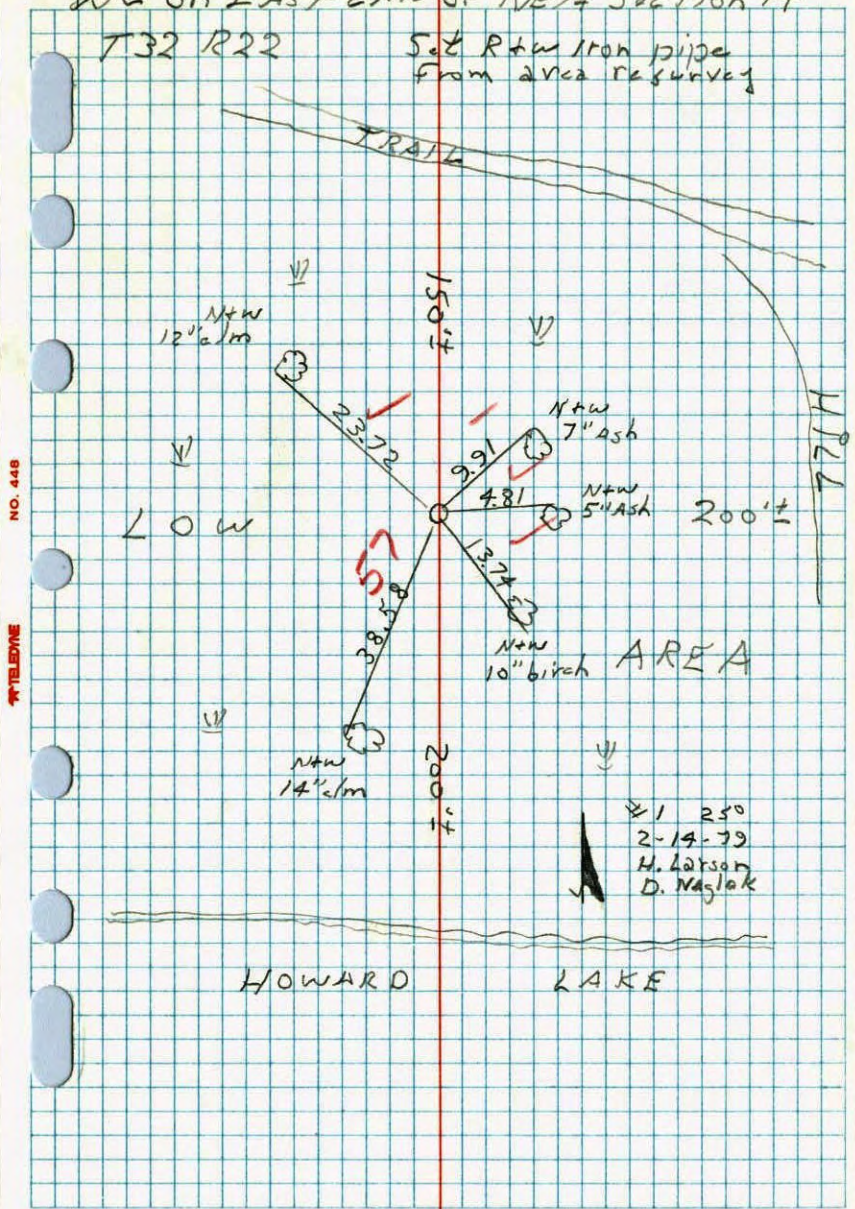 on EAST Line of NE 1/4 Section
T32 R22
Set R+W Iron pipe
from area resurvey
TRAIL
150'±
N+W
12" elm
23.72
N+W
7" Ash
9.91
HILL
4.81
N+W
5" Ash
200'±
LOW
57
13.74
38.58
N+W
10" birch
AREA
N+W
14" elm
200'±
25°
2-14-79
H. Larson
D. Naglak
HOWARD LAKE
NO. 448
TELEDYNE